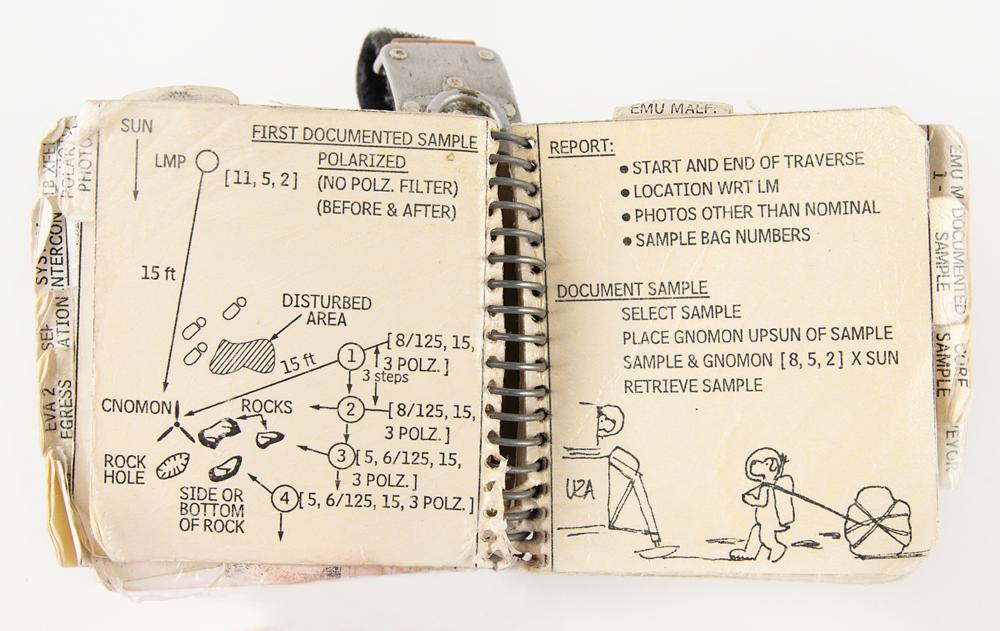 SUN
FIRST DOCUMENTED SAMPLE
LMP
POLARIZED
[11, 5, 2]
(NO POLZ. FILTER)
(BEFORE & AFTER)
15 ft
DISTURBED
AREA
15 ft
1
[8/125, 15,
3 POLZ. ]
3 steps
CNOMON
ROCKS
2
[8/125, 15,
3 POLZ. ]
3
[5, 6/125, 15,
3 POLZ. ]
ROCK
HOLE
SIDE OR
BOTTOM
OF ROCK
4
[5, 6/125, 15, 3 POLZ. ]
POLAR
PHOTO
EVA 2
EGRESS
EMU MALF.
REPORT:
● START AND END OF TRAVERSE
● LOCATION WRT LM
● PHOTOS OTHER THAN NOMINAL
● SAMPLE BAG NUMBERS
DOCUMENT SAMPLE
SELECT SAMPLE
PLACE GNOMON UPSUN OF SAMPLE
SAMPLE & GNOMON [8, 5, 2] X SUN
RETRIEVE SAMPLE
USA
EMU M
1 -
DOCUMENTED
SAMPLE
CORE
SAMPLE